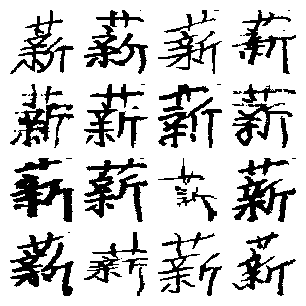 薪薪薪薪
薪薪薪薪
薪薪薪薪
薪薪薪薪